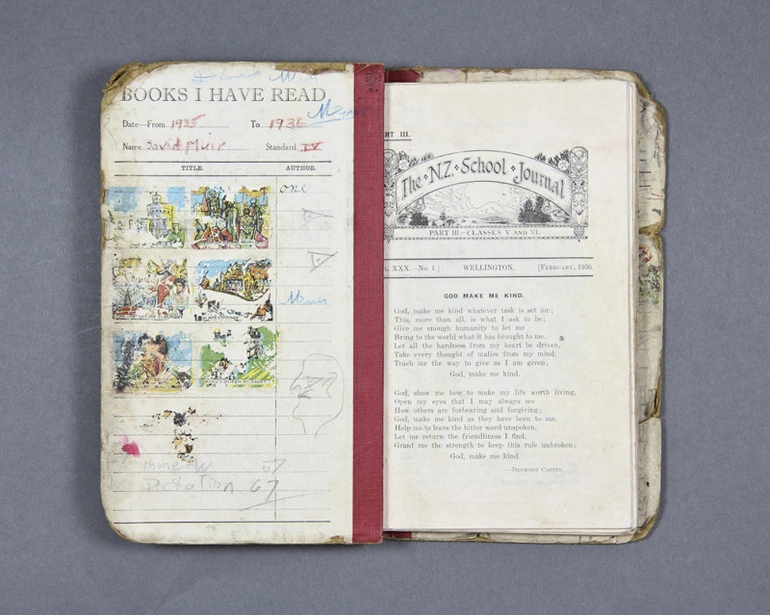 BOOKS I HAVE READ
Date—From 1935 To 1936
Name David Muir Standard IV
TITLE. AUTHOR.
one
Muir
67
Dictation 67
RT III.
The N.Z. School Journal
PART III.—CLASSES V AND VI.
XXX.—No. 1.] WELLINGTON. [FEBRUARY, 1936.
GOD MAKE ME KIND.
God, make me kind whatever task is set me;
This, more than all, is what I ask to be;
Give me enough humanity to let me
Bring to the world what it has brought to me.
Let all the hardness from my heart be driven,
Take every thought of malice from my mind,
Teach me the way to give as I am given;
God, make me kind.
God, show me how to make my life worth living,
Open my eyes that I may always see
How others are forbearing and forgiving;
God, make me kind as they have been to me.
Help me to leave the bitter word unspoken,
Let me return the friendliness I find,
Grant me the strength to keep this rule unbroken;
God, make me kind.
—DESMOND CARTER.